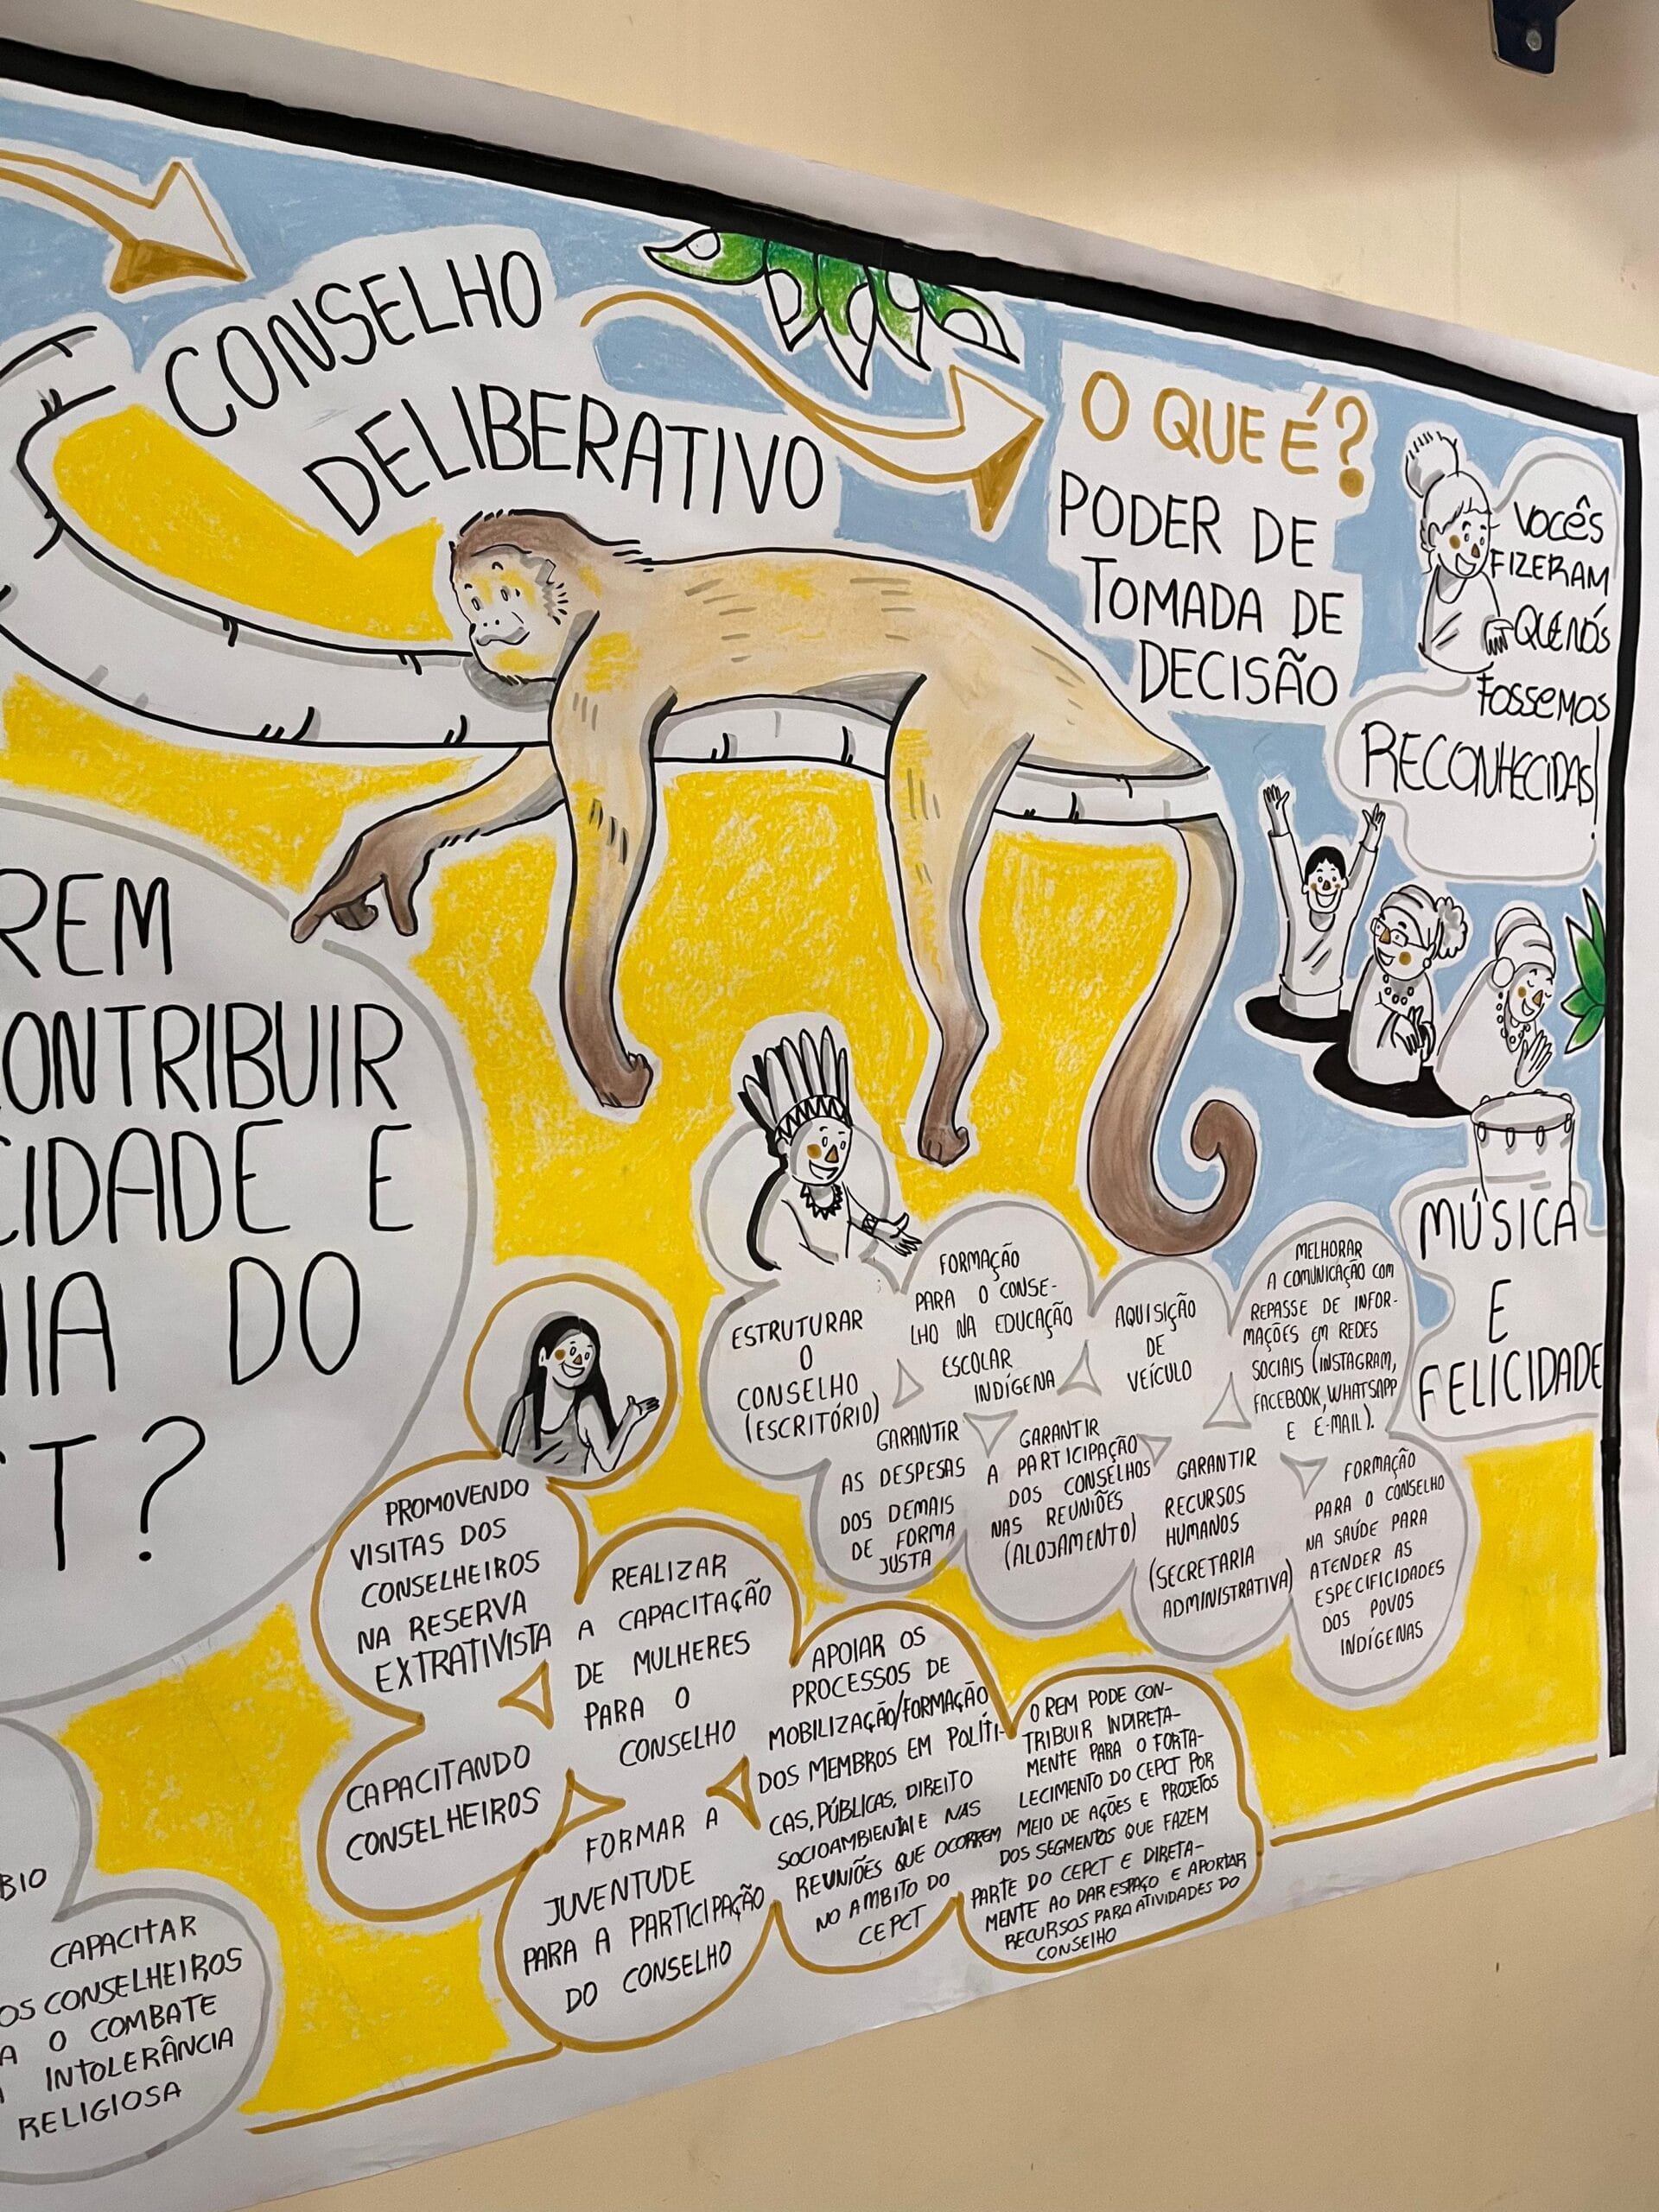 CONSELHO
DELIBERATIVO
O QUE É?
PODER DE
TOMADA DE
DECISÃO
VOCÊS
FIZERAM
QUE NÓS
FOSSEMOS
RECONHECIDAS!
REM
CONTRIBUIR
CIDADE E
DO
T?
MÚSICA
E
FELICIDADE
ESTRUTURAR
O
CONSELHO
(ESCRITÓRIO)
FORMAÇÃO
PARA O CONSE-
LHO NA EDUCAÇÃO
ESCOLAR
INDÍGENA
AQUISIÇÃO
DE
VEÍCULO
MELHORAR
A COMUNICAÇÃO COM
REPASSE DE INFOR-
MAÇÕES EM REDES
SOCIAIS (INSTAGRAM,
FACEBOOK, WHATSAPP
E E-MAIL).
GARANTIR
AS DESPESAS
DOS DEMAIS
DE FORMA
JUSTA
GARANTIR
A PARTICIPAÇÃO
DOS CONSELHOS
NAS REUNIÕES
(ALOJAMENTO)
GARANTIR
RECURSOS
HUMANOS
(SECRETARIA
ADMINISTRATIVA)
FORMAÇÃO
PARA O CONSELHO
NA SAÚDE PARA
ATENDER AS
ESPECIFICIDADES
DOS POVOS
INDÍGENAS
PROMOVENDO
VISITAS DOS
CONSELHEIROS
NA RESERVA
EXTRATIVISTA
REALIZAR
A CAPACITAÇÃO
DE MULHERES
PARA O
CONSELHO
CAPACITANDO
CONSELHEIROS
FORMAR A
JUVENTUDE
PARA A PARTICIPAÇÃO
DO CONSELHO
APOIAR OS
PROCESSOS DE
MOBILIZAÇÃO/FORMAÇÃO
DOS MEMBROS EM POLÍTI-
CAS, PÚBLICAS, DIREITO
SOCIOAMBIENTAL E NAS
REUNIÕES QUE OCORREM
NO AMBITO DO
CEPCT
O REM PODE CON-
TRIBUIR INDIRETA-
MENTE PARA O FORTA-
LECIMENTO DO CEPCT POR
MEIO DE AÇÕES E PROJETOS
DOS SEGMENTOS QUE FAZEM
PARTE DO CEPCT E DIRETA-
MENTE AO DAR ESPAÇO E APORTAR
RECURSOS PARA ATIVIDADES DO
CONSELHO
BIO
CAPACITAR
OS CONSELHEIROS
A O COMBATE
INTOLERÂNCIA
RELIGIOSA